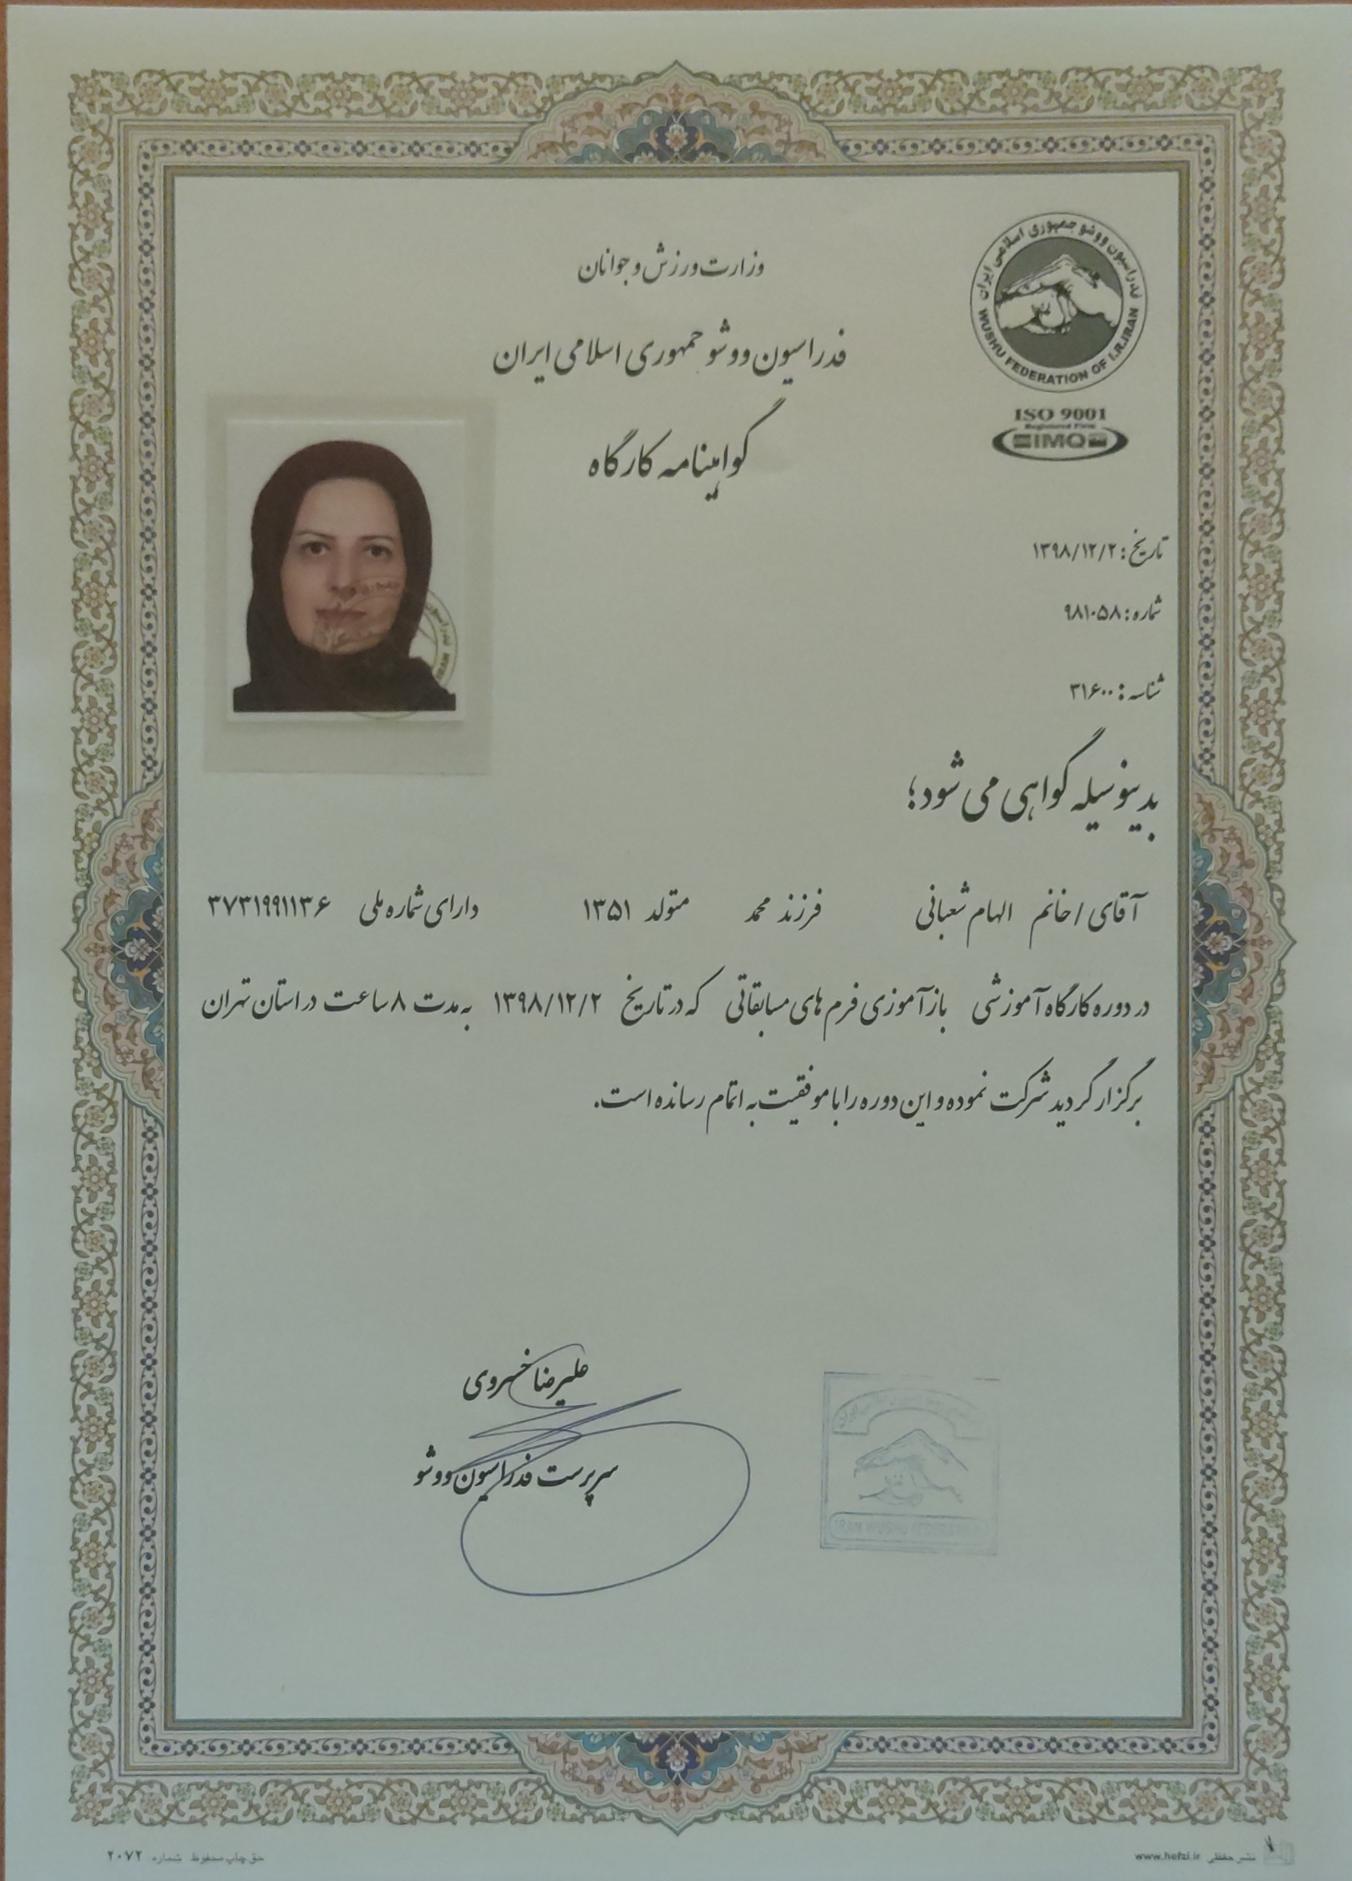 وزارت ورزش و جوانان
فدراسیون ووشو جمهوری اسلامی ایران
گواهینامه کارگاه
فدراسیون ووشو جمهوری اسلامی ایران
WUSHU FEDERATION OF I.R.IRAN
ISO 9001
Registered Firm
IMQ
تاریخ: ۱۳۹۸/۱۲/۲
شماره: ۹۸۱۰۵۸
شناسه: ۳۱۶۰۰
بدینوسیله گواهی می شود؛
آقای / خانم الهام شعبانی فرزند محمد متولد ۱۳۵۱ دارای شماره ملی ۳۷۳۱۹۹۱۱۳۶
در دوره کارگاه آموزشی بازآموزی فرم های مسابقاتی که در تاریخ ۱۳۹۸/۱۲/۲ به مدت ۸ ساعت در استان تهران
برگزار گردید شرکت نموده و این دوره را با موفقیت به اتمام رسانده است.
علیرضا خسروی
سرپرست فدراسیون ووشو
IRAN WUSHU FEDERATION
حق چاپ محفوظ شماره ۲۰۷۲
نشر حفظی www.hefzi.ir